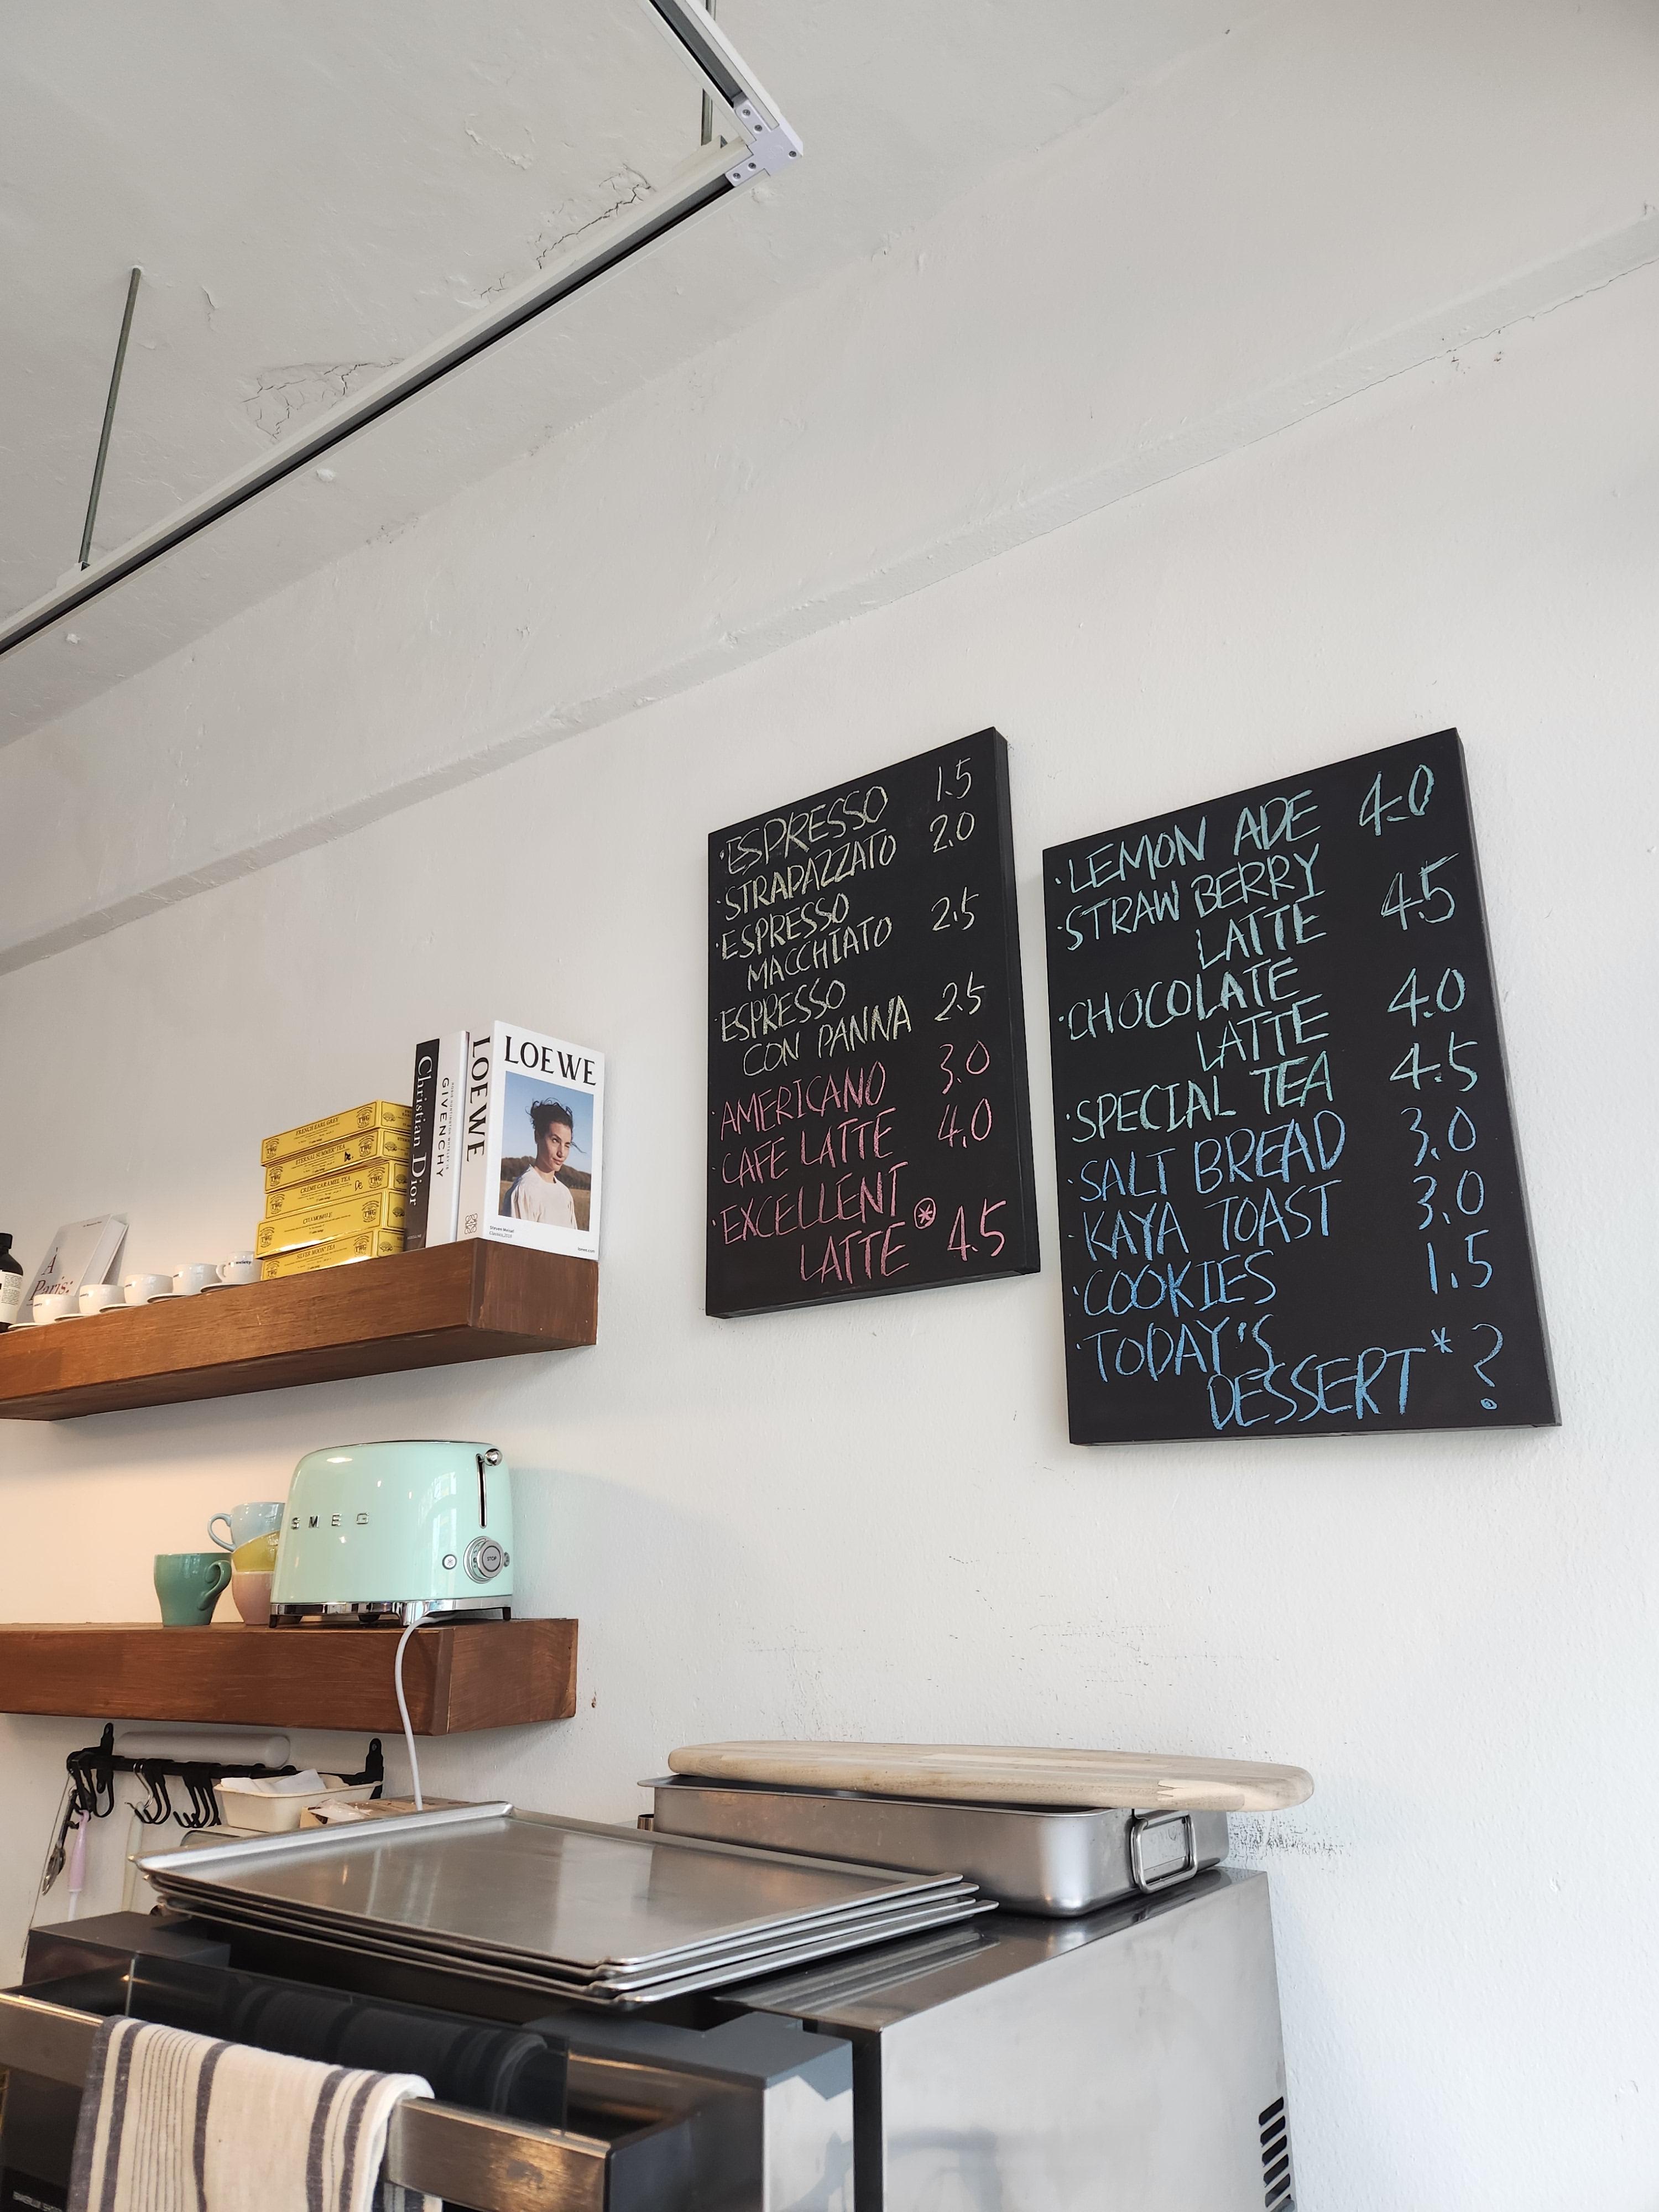 ·ESPRESSO 1.5
·STRAPAZZATO 2.0
·ESPRESSO
MACCHIATO 2.5
·ESPRESSO
CON PANNA 2.5
·AMERICANO 3.0
·CAFE LATTE 4.0
·EXCELLENT
LATTE ⊛ 4.5
·LEMON ADE 4.0
·STRAW BERRY
LATTE 4.5
·CHOCOLATE
LATTE 4.0
·SPECIAL TEA 4.5
·SALT BREAD 3.0
·KAYA TOAST 3.0
·COOKIES 1.5
·TODAY'S
DESSERT * ?
FRENCH EARL GREY
ETERNAL SUMMER TEA
CRÈME CARAMEL TEA
CHAMOMILE
SILVER MOON TEA
TWG
Christian Dior
GIVENCHY
LOEWE
LOEWE
À
Paris:
SMEG
STOP